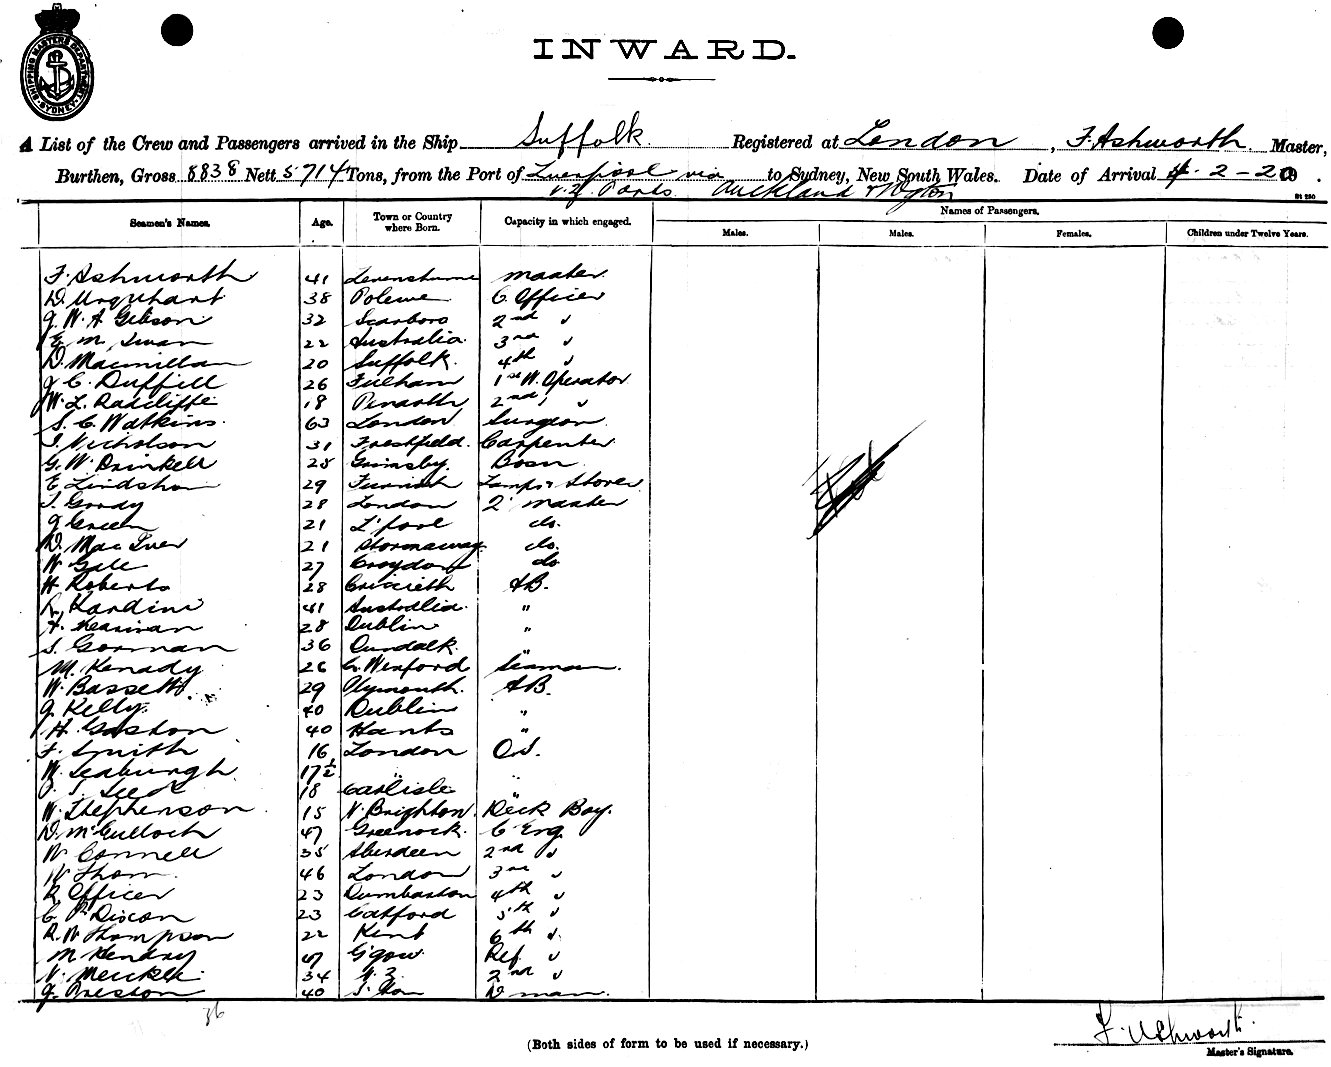 SHIPPING MASTERS DEPARTMENT SYDNEY
INWARD.
A List of the Crew and Passengers arrived in the Ship Suffolk. Registered at London, F. Ashworth. Master,
Burthen, Gross 8838 Nett 5714 Tons, from the Port of Liverpool via to Sydney, New South Wales. Date of Arrival 4.2-20.
N.Z. Ports. Auckland & Wgton
Seamen's Names. Age. Town or Country where Born. Capacity in which engaged. Names of Passengers.
Males. Males. Females. Children under Twelve Years.
F. Ashworth 41 Levenshume master.
D. Urquhart 38 Polewe C. Officer
J. W. A Gibson 32 Scarboro 2nd "
E. M. Swan 22 Australia. 3rd "
D. Macmillan 20 Suffolk. 4th "
J. C. Duffill 26 Fulham 1st W. Operator
W. L. Radcliffe 18 Penarth 2nd "
S. C. Watkins. 63 London Surgeon
J. Nicholson 31 Carpenter
G. W. Drinkell 28 Grimsby. Bosn.
E Lindshow 29 Lamps & Stores
J. Goody 28 London Q master
J Green 21 L'pool do.
D. Mac Iver 21 Stornaway. do.
W Gale 27 Croydon do
H Roberts 28 Criccieth AB.
Hardini 41 Australia. "
28 Dublin "
S. Gorman 36 Dundalk. "
M. Kenady 26 Co. Wexford Seaman.
W. Bassett. 29 Plymouth. AB.
J. Kelly. 40 Dublin "
H. Gaston 40 Hants "
F. Smith 16 London O.S.
W. Seaburgh 17½ " "
18 Carlisle "
W. Stephenson 15 N. Brighton. Deck Boy.
D. McCulloch 47 Greenock. C Eng.
W Connell 35 Aberdeen 2nd "
W Thom. 46 London 3rd "
R. Officer 23 Dumbarton 4th "
C. P. Dixon 23 Catford 5th "
R. W. Thompson 22 Kent 6th "
M Kendry 47 G'gow. Ref. "
N. Meikle. 34 N.Z. 2nd "
J. Preston 40 D man.
36
(Both sides of form to be used if necessary.)
F. Ashworth.
Master's Signature.